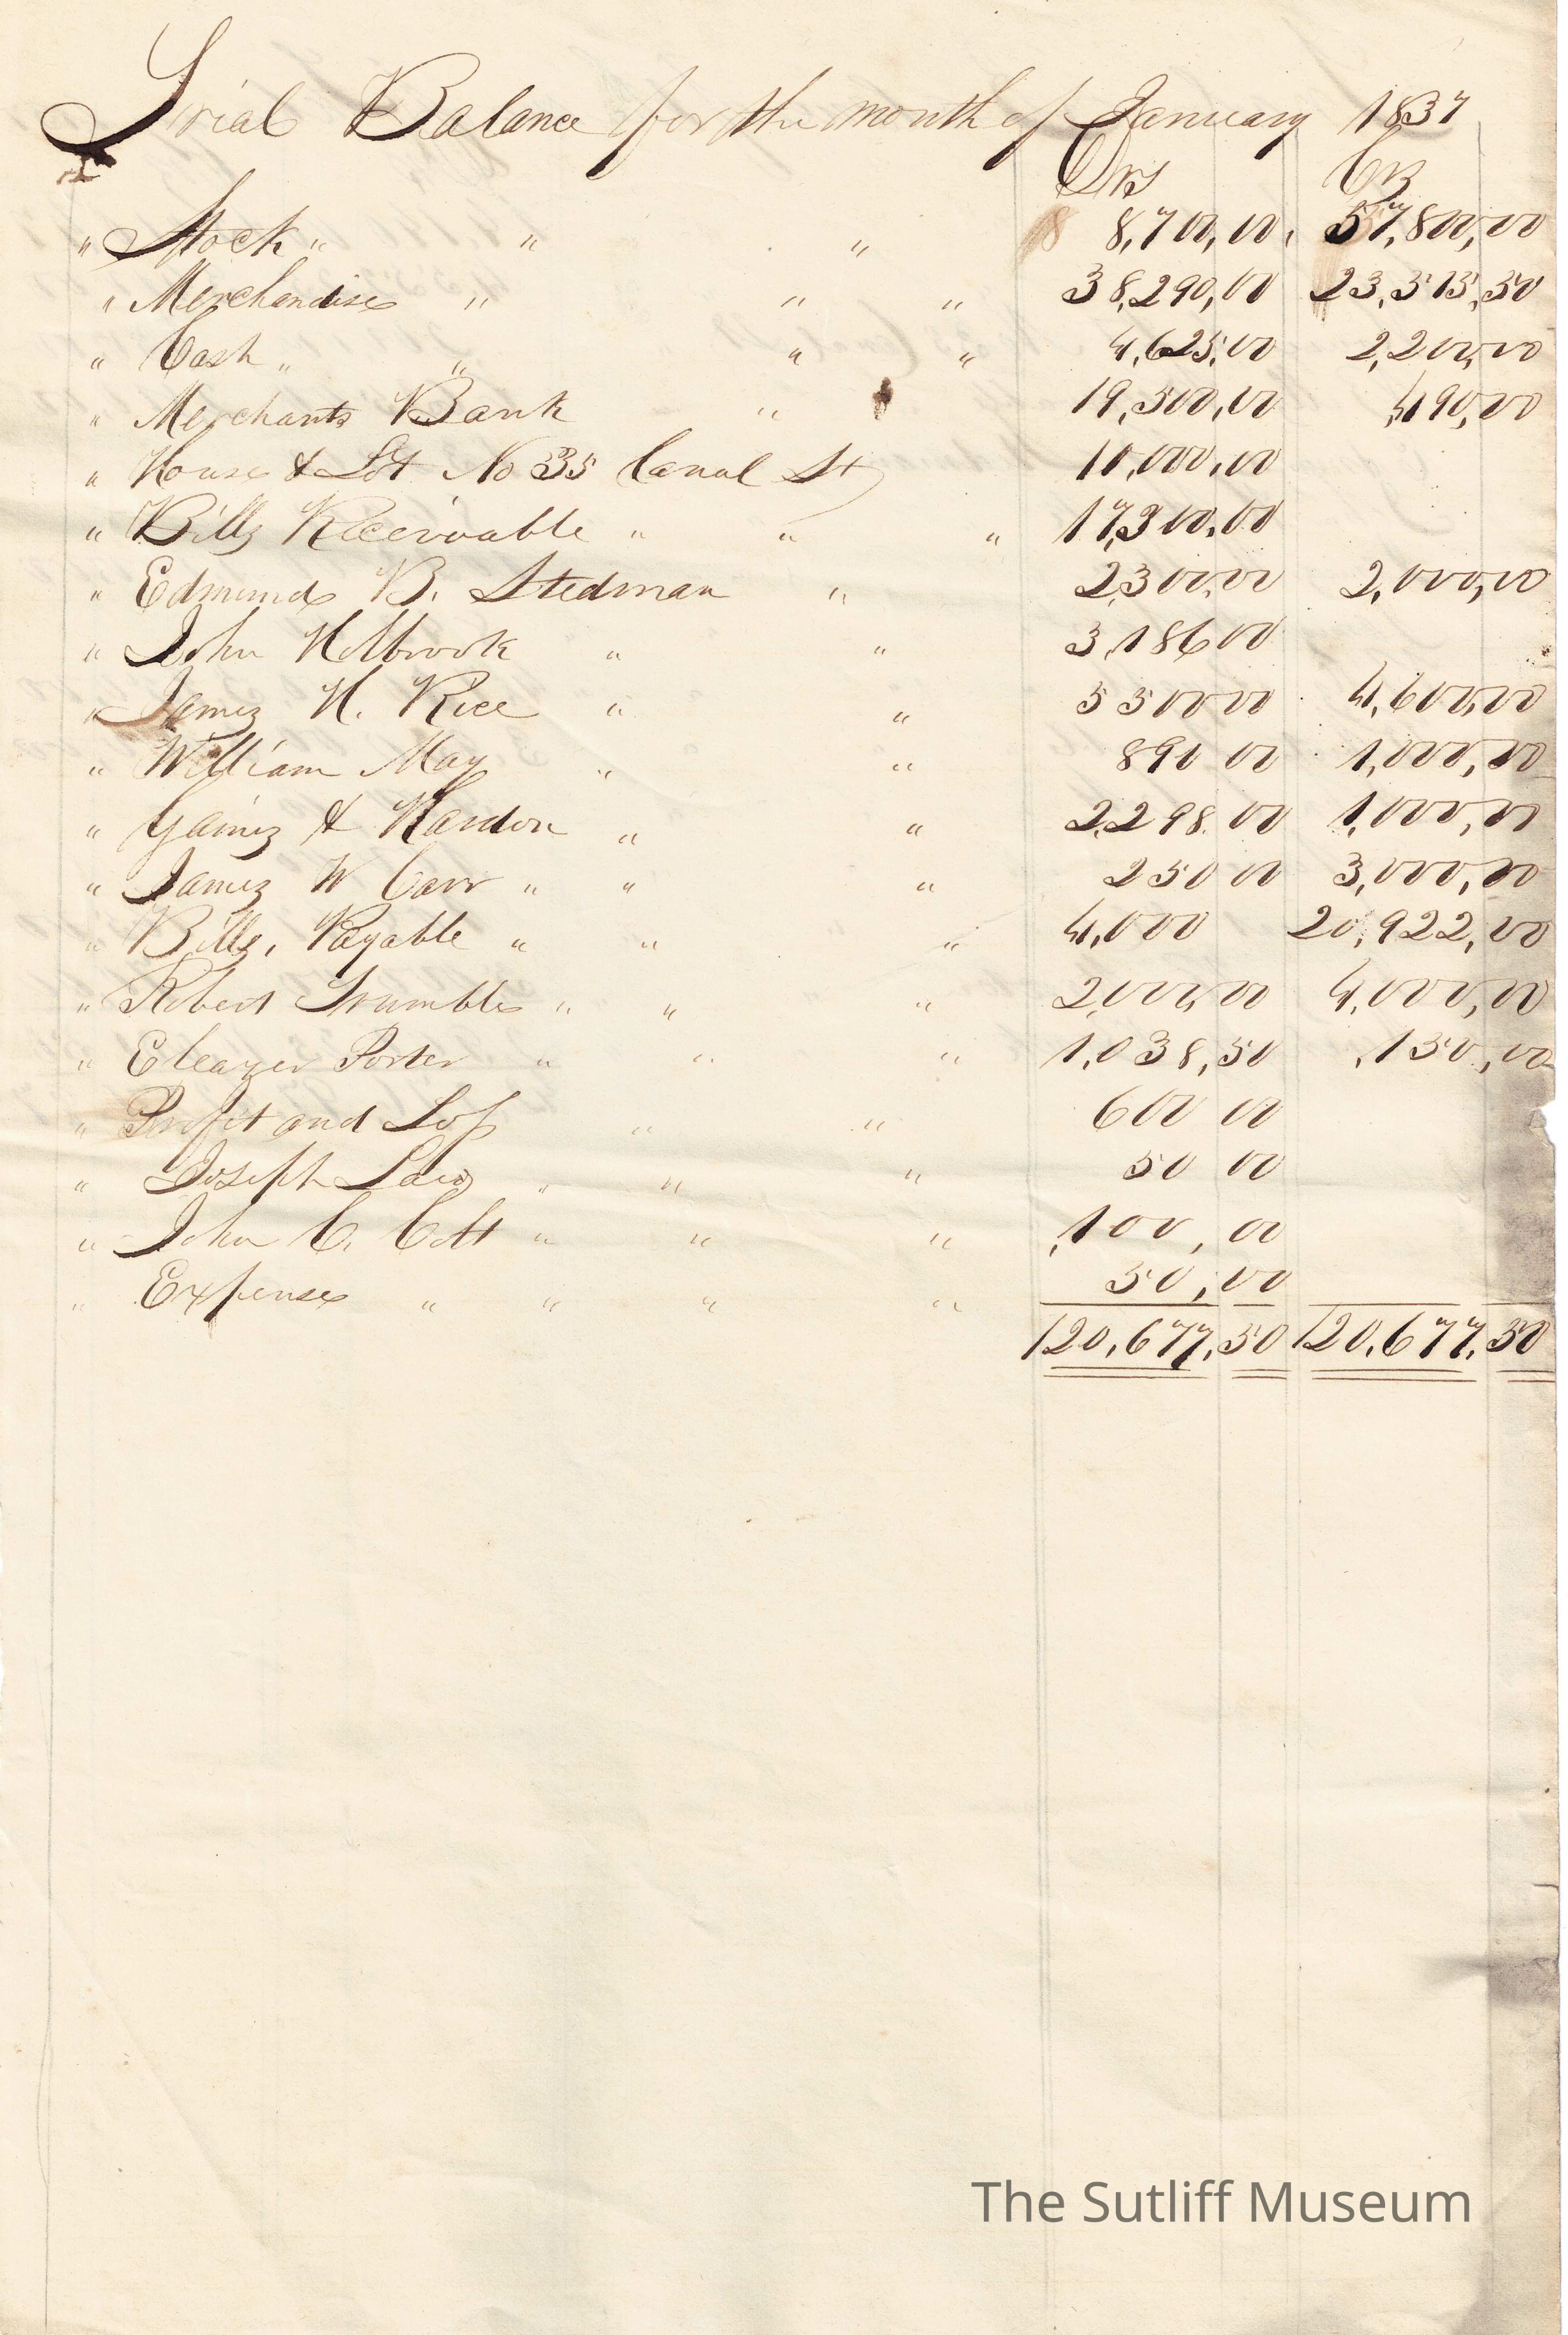 Trial Balance for the month of January 1837
Drs Crs
" Stock " " " 8,700,00, 57,800,00
" Merchandise " " " 38,290,00 23,515,50
" Cash " " " " 4,625,00 2,200,00
" Merchants Bank " 19,500,00 ,490,00
" House & Lot No 35 Canal St 10,000,00
" Bills Receivable " " " 17,300,00
" Edmund B. Stedman " 2,300,00 2,000,00
" John Holbrook " " 3,186 00
" James H. Rice " " 5 500 00 4,600,00
" William May " " 890 00 1,000,00
" Gaines & Hardon " " 2,298.00 1,000,00
" James W Carr " " " 250 00 3,000,00
" Bills, Payable " " " 4,000 20,922,00
" Robert Trumble " " " 2,000,00 4,000,00
" Eleazer Porter " " " 1,038,50 ,150,00
" Profit and Loss " " 600 00
" Joseph " " " 50 00
" John C. Colt " " " ,100,00
" Expenses " " " " 50,00
120,677,50 120,677,50
The Sutliff Museum